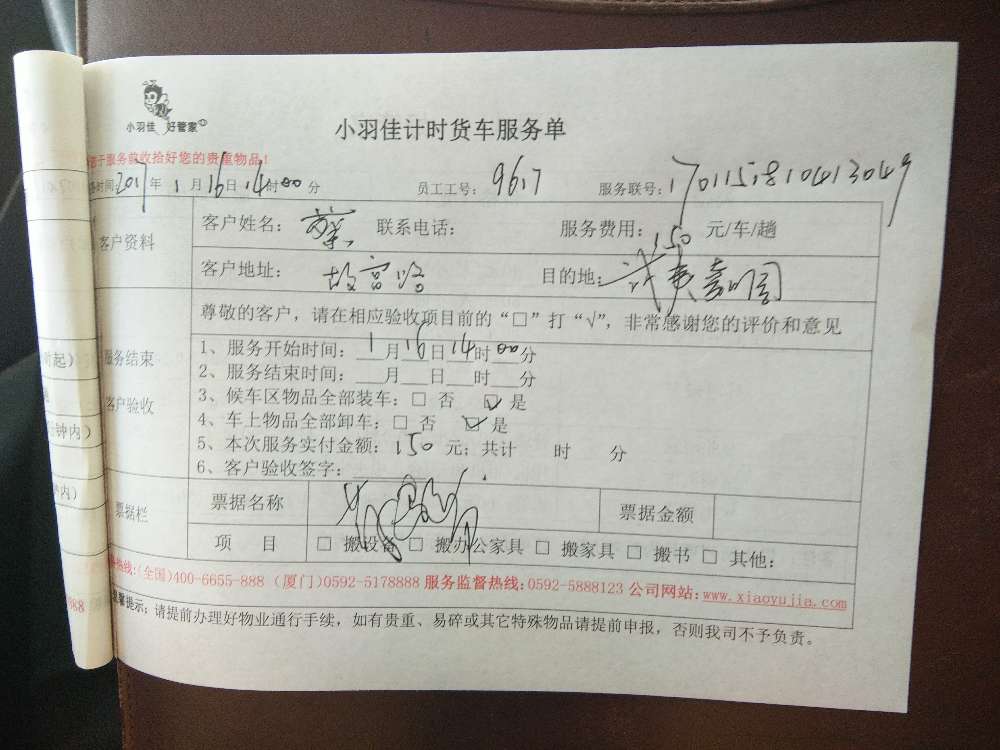 小羽佳 好管家
小羽佳计时货车服务单
于服务前收拾好您的贵重物品!
时间:2017年1月16日14时00分 员工工号: 9617 服务联号:
客户资料
客户姓名: 蔡 联系电话: 服务费用: 150 元/车/趟
客户地址: 故宫路 目的地:
服务结束
客户验收
尊敬的客户，请在相应验收项目前的“□”打“√”，非常感谢您的评价和意见
1、服务开始时间: 1月16日14时00分
2、服务结束时间: ___月___日___时___分
3、候车区物品全部装车: □ 否 ☑ 是
4、车上物品全部卸车: □ 否 ☑ 是
5、本次服务实付金额: 150 元; 共计 时 分
6、客户验收签字:
票据栏
票据名称 票据金额
项 目 □ 搬设备 □ 搬办公家具 □ 搬家具 □ 搬书 □ 其他:
热线:(全国)400-6655-888 (厦门)0592-5178888 服务监督热线:0592-5888123 公司网站:www.xiaoyujia.com
提示: 请提前办理好物业通行手续，如有贵重、易碎或其它特殊物品请提前申报，否则我司不予负责。
时起)
分钟内)
内)
988